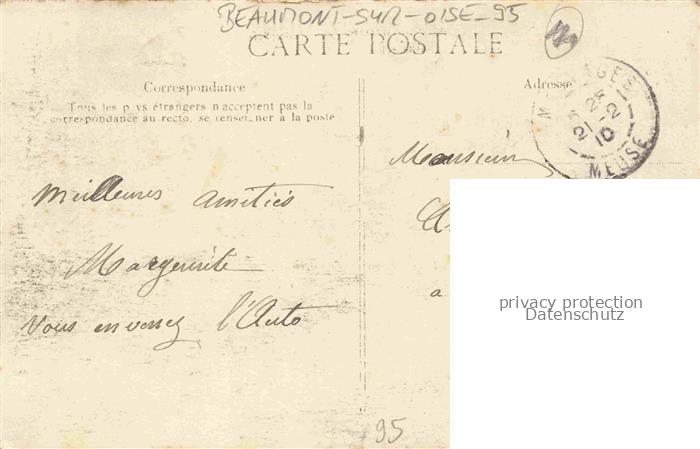 BEAUMONT-SUR-OISE-95
CARTE POSTALE
Correspondance
Tous les p ys étrangers n acceptent pas la
correspondance au recto, se rensei ner à la poste
Meilleures amitiés
Marguerite
Vous l'Auto
Adresse
Monsieur
a
MEUSE
privacy protection
Datenschutz
95